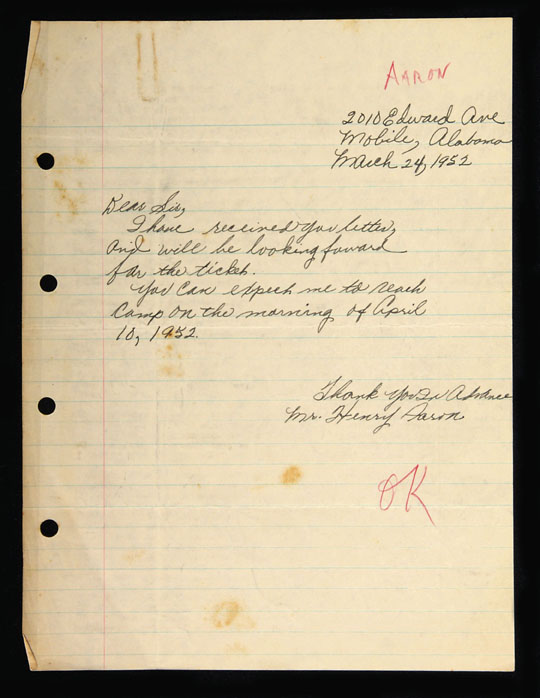 AARON
2010 Edward Ave
Mobile, Alabama
March 24, 1952
Dear Sir,
I have received you letter,
and will be looking foward
for the ticket.
You can expect me to reach
camp on the morning of April
10, 1952.
Thank You In Advance
Mr. Henry Aaron
OK